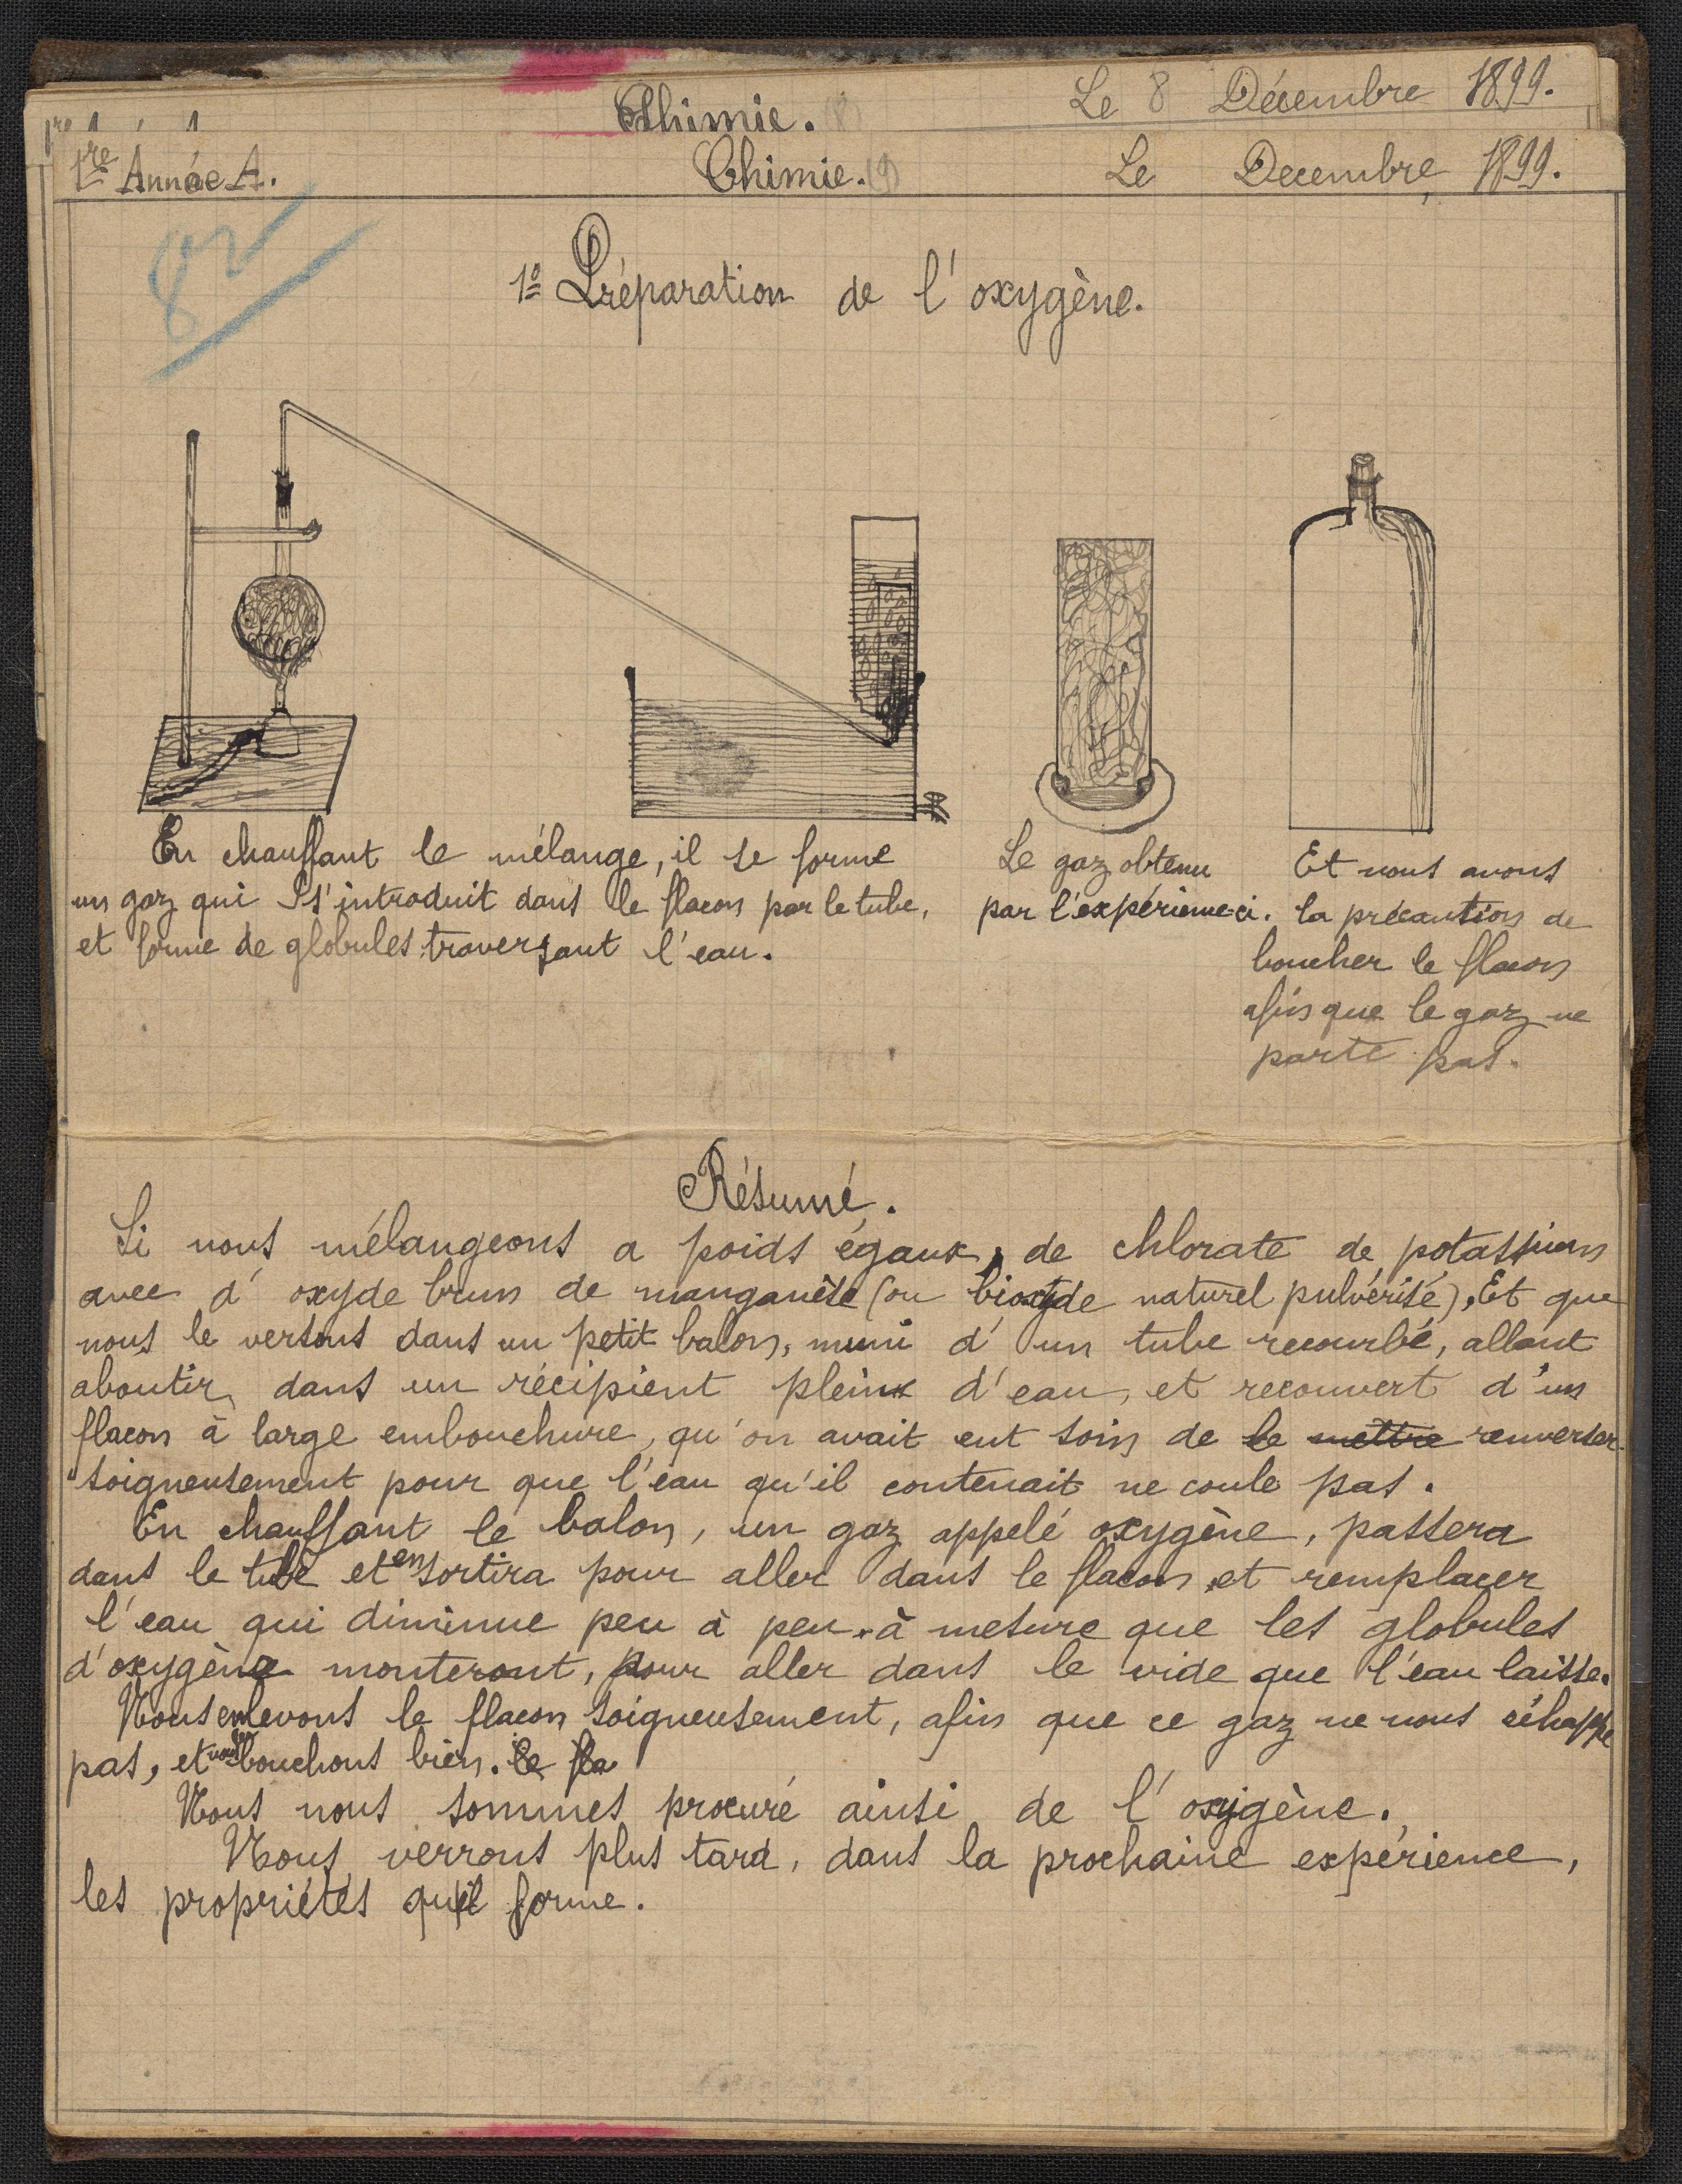 Chimie. (8) Le 8 Décembre 1899.
1re Année A. Chimie. (9) Le Decembre 1899.
82
1º Préparation de l'oxygène.
En chauffant le mélange, il se forme
un gaz qui s'introduit dans le flacon par le tube,
et forme de globules traversant l'eau.
Le gaz obtenu
par l'expérience-ci.
Et nous avons
la précaution de
boucher le flacon
afin que le gaz ne
parte pas.
Résumé.
Si nous mélangeons a poids égaux, de chlorate de potassium
avec d'oxyde brun de manganèse (ou bioxyde naturel pulvérisé), Et que
nous le versons dans un petit balon, muni d'un tube recourbé, allant
aboutir, dans un récipient plein d'eau, et recouvert d'un
flacon à large embouchure, qu'on avait eut soin de le mettre renverser
soigneusement pour que l'eau qu'il contenait ne coule pas.
En chauffant le balon, un gaz appelé oxygène, passera
dans le tube et en sortira pour aller dans le flacon, et remplacer
l'eau qui diminue peu à peu à mesure que les globules
d'oxygène monteront, pour aller dans le vide que l'eau laisse.
Nous enlevons le flacon soigneusement, afin que ce gaz ne nous échappe
pas, et nous bouchons bien. le fla
Nous nous sommes procuré ainsi de l'oxygène.
Nous verrons plus tard, dans la prochaine expérience,
les propriétés qu'il forme.